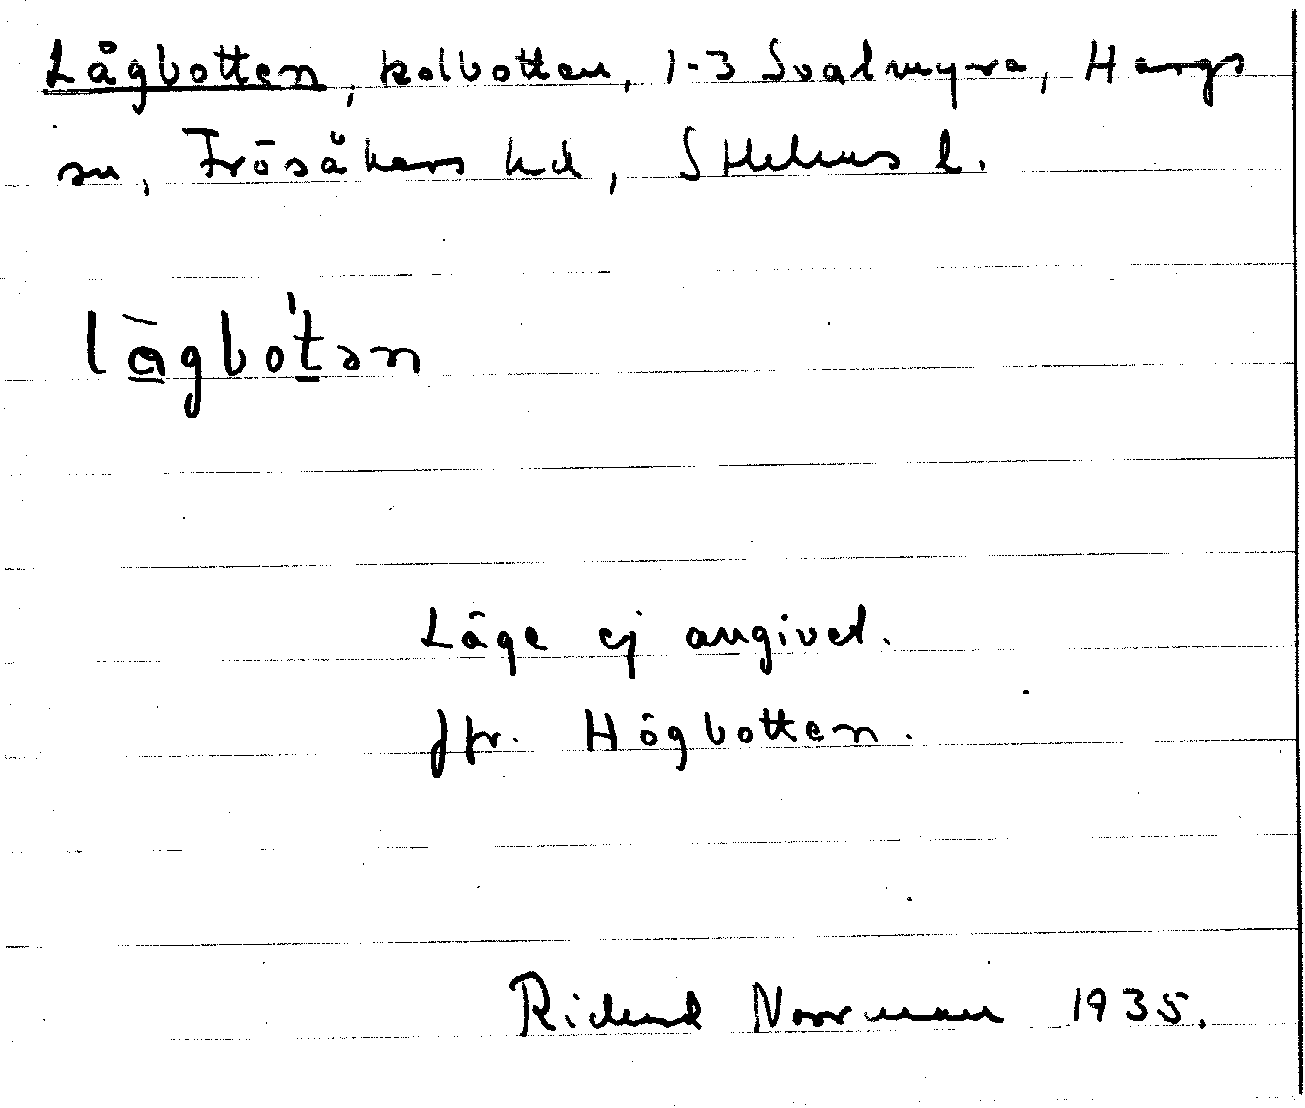 Lågbotten, kolbotten, 1-3 Svalmyra, Hargs
sn, Frösåkers hd, Sthlms l.
lågbo'tən
Läge ej angivet.
Jfr. Högbotten.
Rickard Norrman 1935.